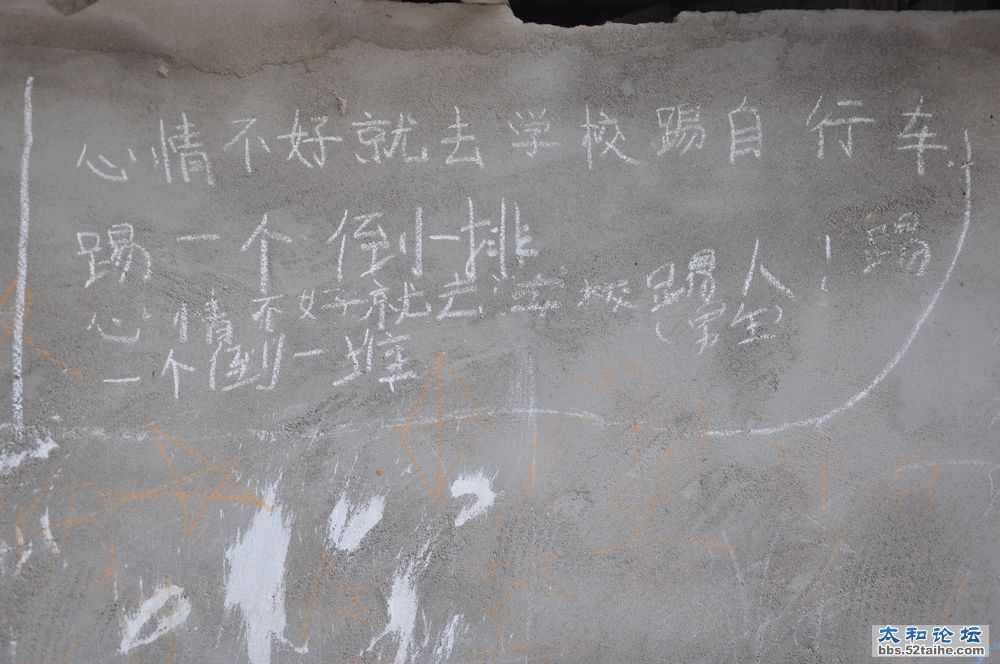 心情不好就去学校踢自行车
踢一个倒一排
心情不好就去学校踢人！踢
（学生）
一个倒一堆
太和论坛
bbs.52taihe.com